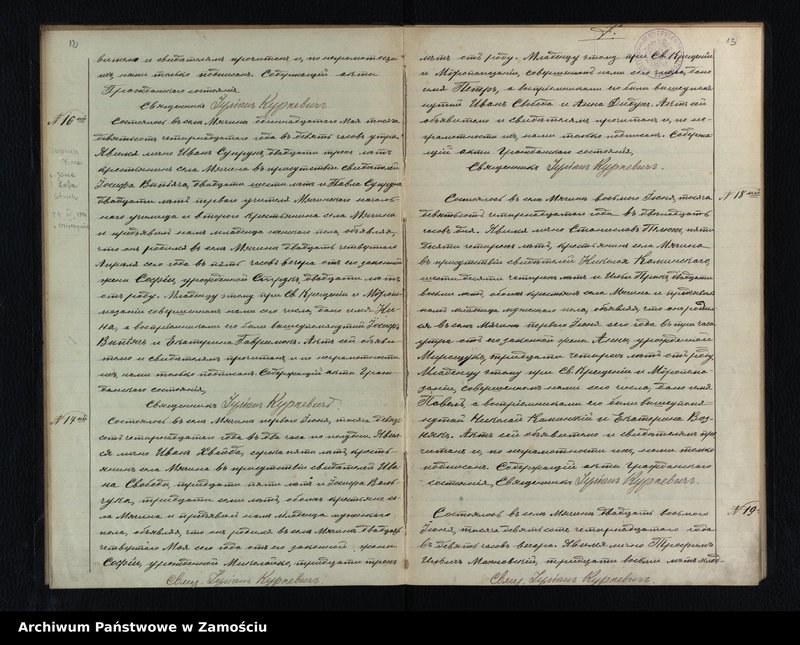 12
вителю и свидетелямъ прочитанъ и, по неграмотности
ихъ, нами только подписанъ. Содержащiй акты
Гражданскаго состоянiя
Священникъ Iулiанъ Куркевичъ
№ 16-ый
Состоялось въ селѣ Мячина одиннадцатаго Мая тысяча
девятьсотъ четырнадцатаго года въ девять часовъ утра.
Явился лично Иванъ Супрунъ, двадцати трехъ лѣтъ
крестьянинъ села Мячина въ присутствiи свидѣтелей
Iосифа, двадцати шести лѣтъ и Павла
двадцати лѣтъ первого учителя Мячинскаго началь
наго училища и второго крестьянина села Мячина
и предъявилъ намъ младенца женскаго пола, объявляя,
что онъ родился въ селѣ Мячина двадцать четвертаго
Апрѣля сего года въ пять часовъ вечера отъ его законной
жены Софiи, урожденной, двадцати лѣтъ
отъ роду. Младенцу этому при Св. Крещенiи и Мѵропо-
мазанiи совершенномъ нами сего числа, дано имя Ни-
на, а воспрiемниками его были вышеупомянутый Iосифъ
и Екатерина Гаврилюкъ. Актъ сей объяви-
телю и свидѣтелямъ прочитанъ и по неграмотности
ихъ, нами только подписанъ. Содержащiй акты Граж-
данскаго состоянiя,
Священникъ Iулiанъ Куркевичъ.
№ 17-ый
Состоялось въ селѣ Мячина перваго Iюня, тысяча девять
сотъ четырнадцатаго года въ два часа по полудни. Явил-
ся лично Иванъ, сорока пяти лѣтъ, кресть-
янинъ села Мячина въ присутствiи свидѣтелей Ива
на Свободы, тридцати пяти лѣтъ и Iосифа
тридцати семи лѣтъ, обоихъ крестьянъ се-
ла Мячина и предъявилъ намъ младенца мужескаго
пола, объявляя, что онъ родился въ селѣ Мячина двадцать
четвертаго Мая сего года отъ его законной жены
Софiи, урожденной, тридцати трехъ
Свящ. Iулiанъ Куркевичъ
13
лѣтъ отъ роду. Младенцу этому при Св. Крещенiи
и Мѵропомазанiи, совершенномъ нами сего числа, дано
имя Петръ, а воспрiемниками его были вышеупомя-
нутый Иванъ Свобода и Анна. Актъ сей
объявителю и свидѣтелямъ прочитанъ и, по не-
грамотности ихъ, нами только подписанъ. Содержа-
щiй акты Гражданскаго состоянiя,
Священникъ Iулiанъ Куркевичъ.
№ 18-ый
Состоялось въ селѣ Мячина восьмого Iюня, тысяча
девятьсотъ четырнадцатаго года въ двѣнадцать
часовъ дня. Явился лично Станиславъ, пяти
десяти четырехъ лѣтъ, крестьянинъ села Мячина
въ присутствiи свидѣтелей Николая Каминскаго,
шестидесяти четырехъ лѣтъ и, двадцати
восьми лѣтъ, обоихъ крестьянъ села Мячина и предъявилъ
намъ младенца мужескаго пола, объявляя, что онъ родил
ся въ селѣ Мячина перваго Iюня сего года въ три часа
утра отъ его законной жены Анны, урожденной
тридцати четырехъ лѣтъ отъ роду.
Младенцу этому при Св. Крещенiи и Мѵропома-
занiи, совершенномъ нами сего числа, дано имя
Павелъ, а воспрiемниками его были вышеупомя-
нутый Николай Каминскiй и Екатерина Воз-
някъ. Актъ сей объявителю и свидѣтелямъ про
читанъ и, по неграмотности ихъ, нами только
подписанъ. Содержащiй акты Гражданскаго
состоянiя, Священникъ Iулiанъ Куркевичъ.
№ 19-
Состоялось въ селѣ Мячина двадцать восьмого
Iюня, тысяча девятьсотъ четырнадцатаго года
въ девять часовъ вечера. Явился лично Трофимъ
Маковскiй, тридцати восьми лѣтъ
Свящ. Iулiанъ Куркевичъ.
Archiwum Państwowe w Zamościu